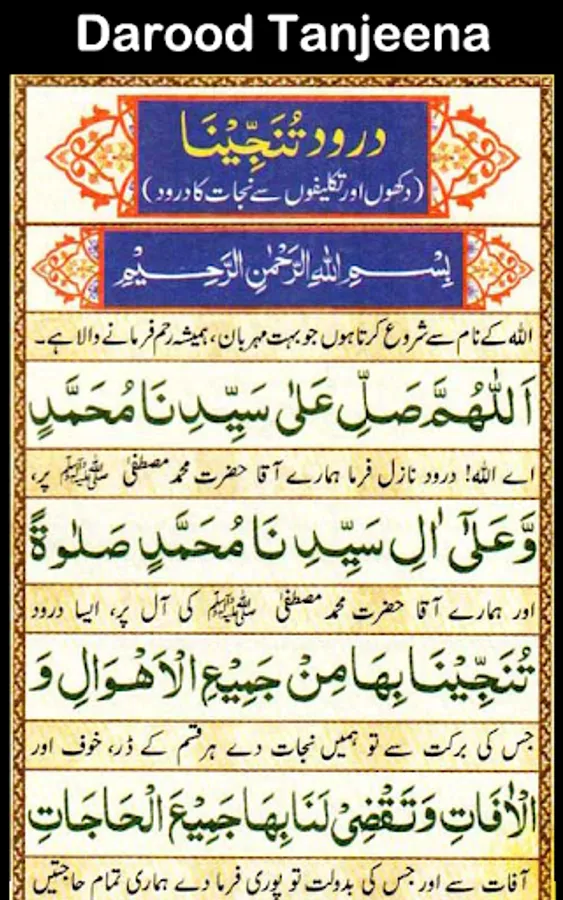 Darood Tanjeena
درود تُنَجِّیْنَا
(دکھوں اور تکلیفوں سے نجات کا درود)
بِسْمِ اللهِ الرَّحْمٰنِ الرَّحِیْمِ
اللہ کے نام سے شروع کرتا ہوں جو بہت مہربان، ہمیشہ رحم فرمانے والا ہے۔
اَللّٰهُمَّ صَلِّ عَلٰی سَیِّدِنَا مُحَمَّدٍ
اے اللہ! درود نازل فرما ہمارے آقا حضرت محمد مصطفیٰ ﷺ پر،
وَّعَلٰۤی اٰلِ سَیِّدِنَا مُحَمَّدٍ صَلٰوةً
اور ہمارے آقا حضرت محمد مصطفیٰ ﷺ کی آل پر، ایسا درود
تُنَجِّیْنَا بِهَا مِنْ جَمِیْعِ الْاَهْوَالِ وَ
جس کی برکت سے تو ہمیں نجات دے ہر قسم کے ڈر، خوف اور
الْاٰفَاتِ وَتَقْضِیْ لَنَا بِهَا جَمِیْعَ الْحَاجَاتِ
آفات سے اور جس کی بدولت تو پوری فرما دے ہماری تمام حاجتیں